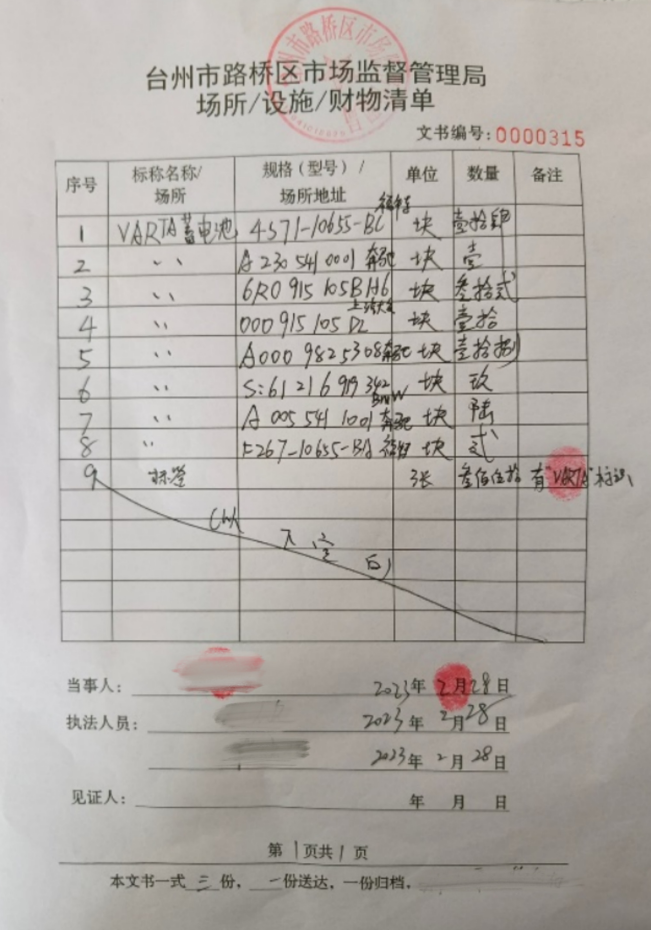 台州市路桥区市场监督管理局
场所/设施/财物清单
文书编号：0000315
序号 标称名称/场所 规格（型号）/场所地址 单位 数量 备注
1 VARTA蓄电池 4S71-10655-BC 福特 块 壹拾肆
2 〃 A 230 541 0001 奔驰 块 壹
3 〃 6R0 915 105B H6 上海大众 块 叁拾弍
4 〃 000 915 105 DL 块 壹拾
5 〃 A000 982 5308 奔驰 块 壹拾捌
6 〃 S:61 21 6 919 342 BMW 块 玖
7 〃 A 005 541 1001 奔驰 块 陆
8 〃 F267-10655-BA 福特 块 弍
9 标签 张 叁佰伍拾 有"VARTA"标识
以下空白
当事人： 2023年2月28日
执法人员： 2023年2月28日
2023年2月28日
见证人： 年 月 日
第1页共1页
本文书一式三份，一份送达，一份归档，